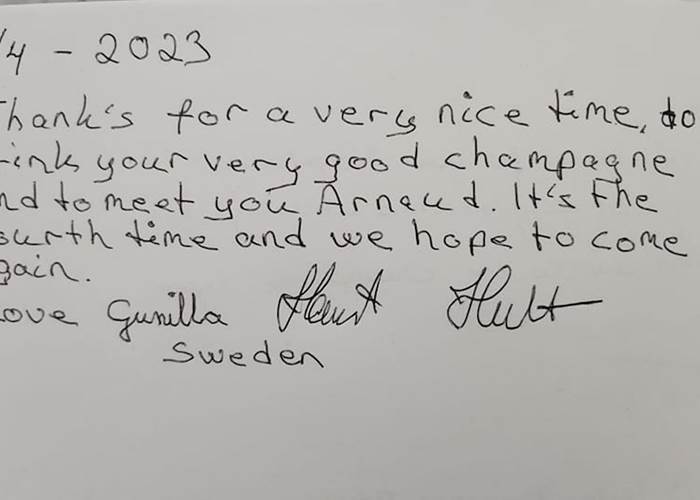 /4 - 2023
Thank's for a very nice time, to
rink your very good champagne
nd to meet you Arnaud. It's the
ourth time and we hope to come
gain.
ove Gunilla Hult
Sweden